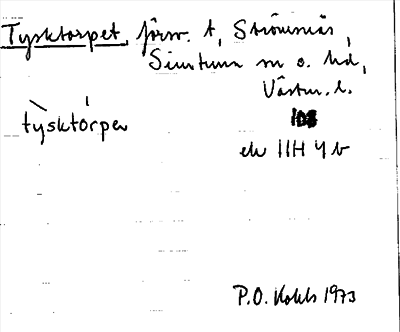 Tysktorpet, försv. t, Strömsnäs,
Simtuna sn o. hd,
Västm. l.
tysktòrpe
ek 11H 4 b
P.O. 1973